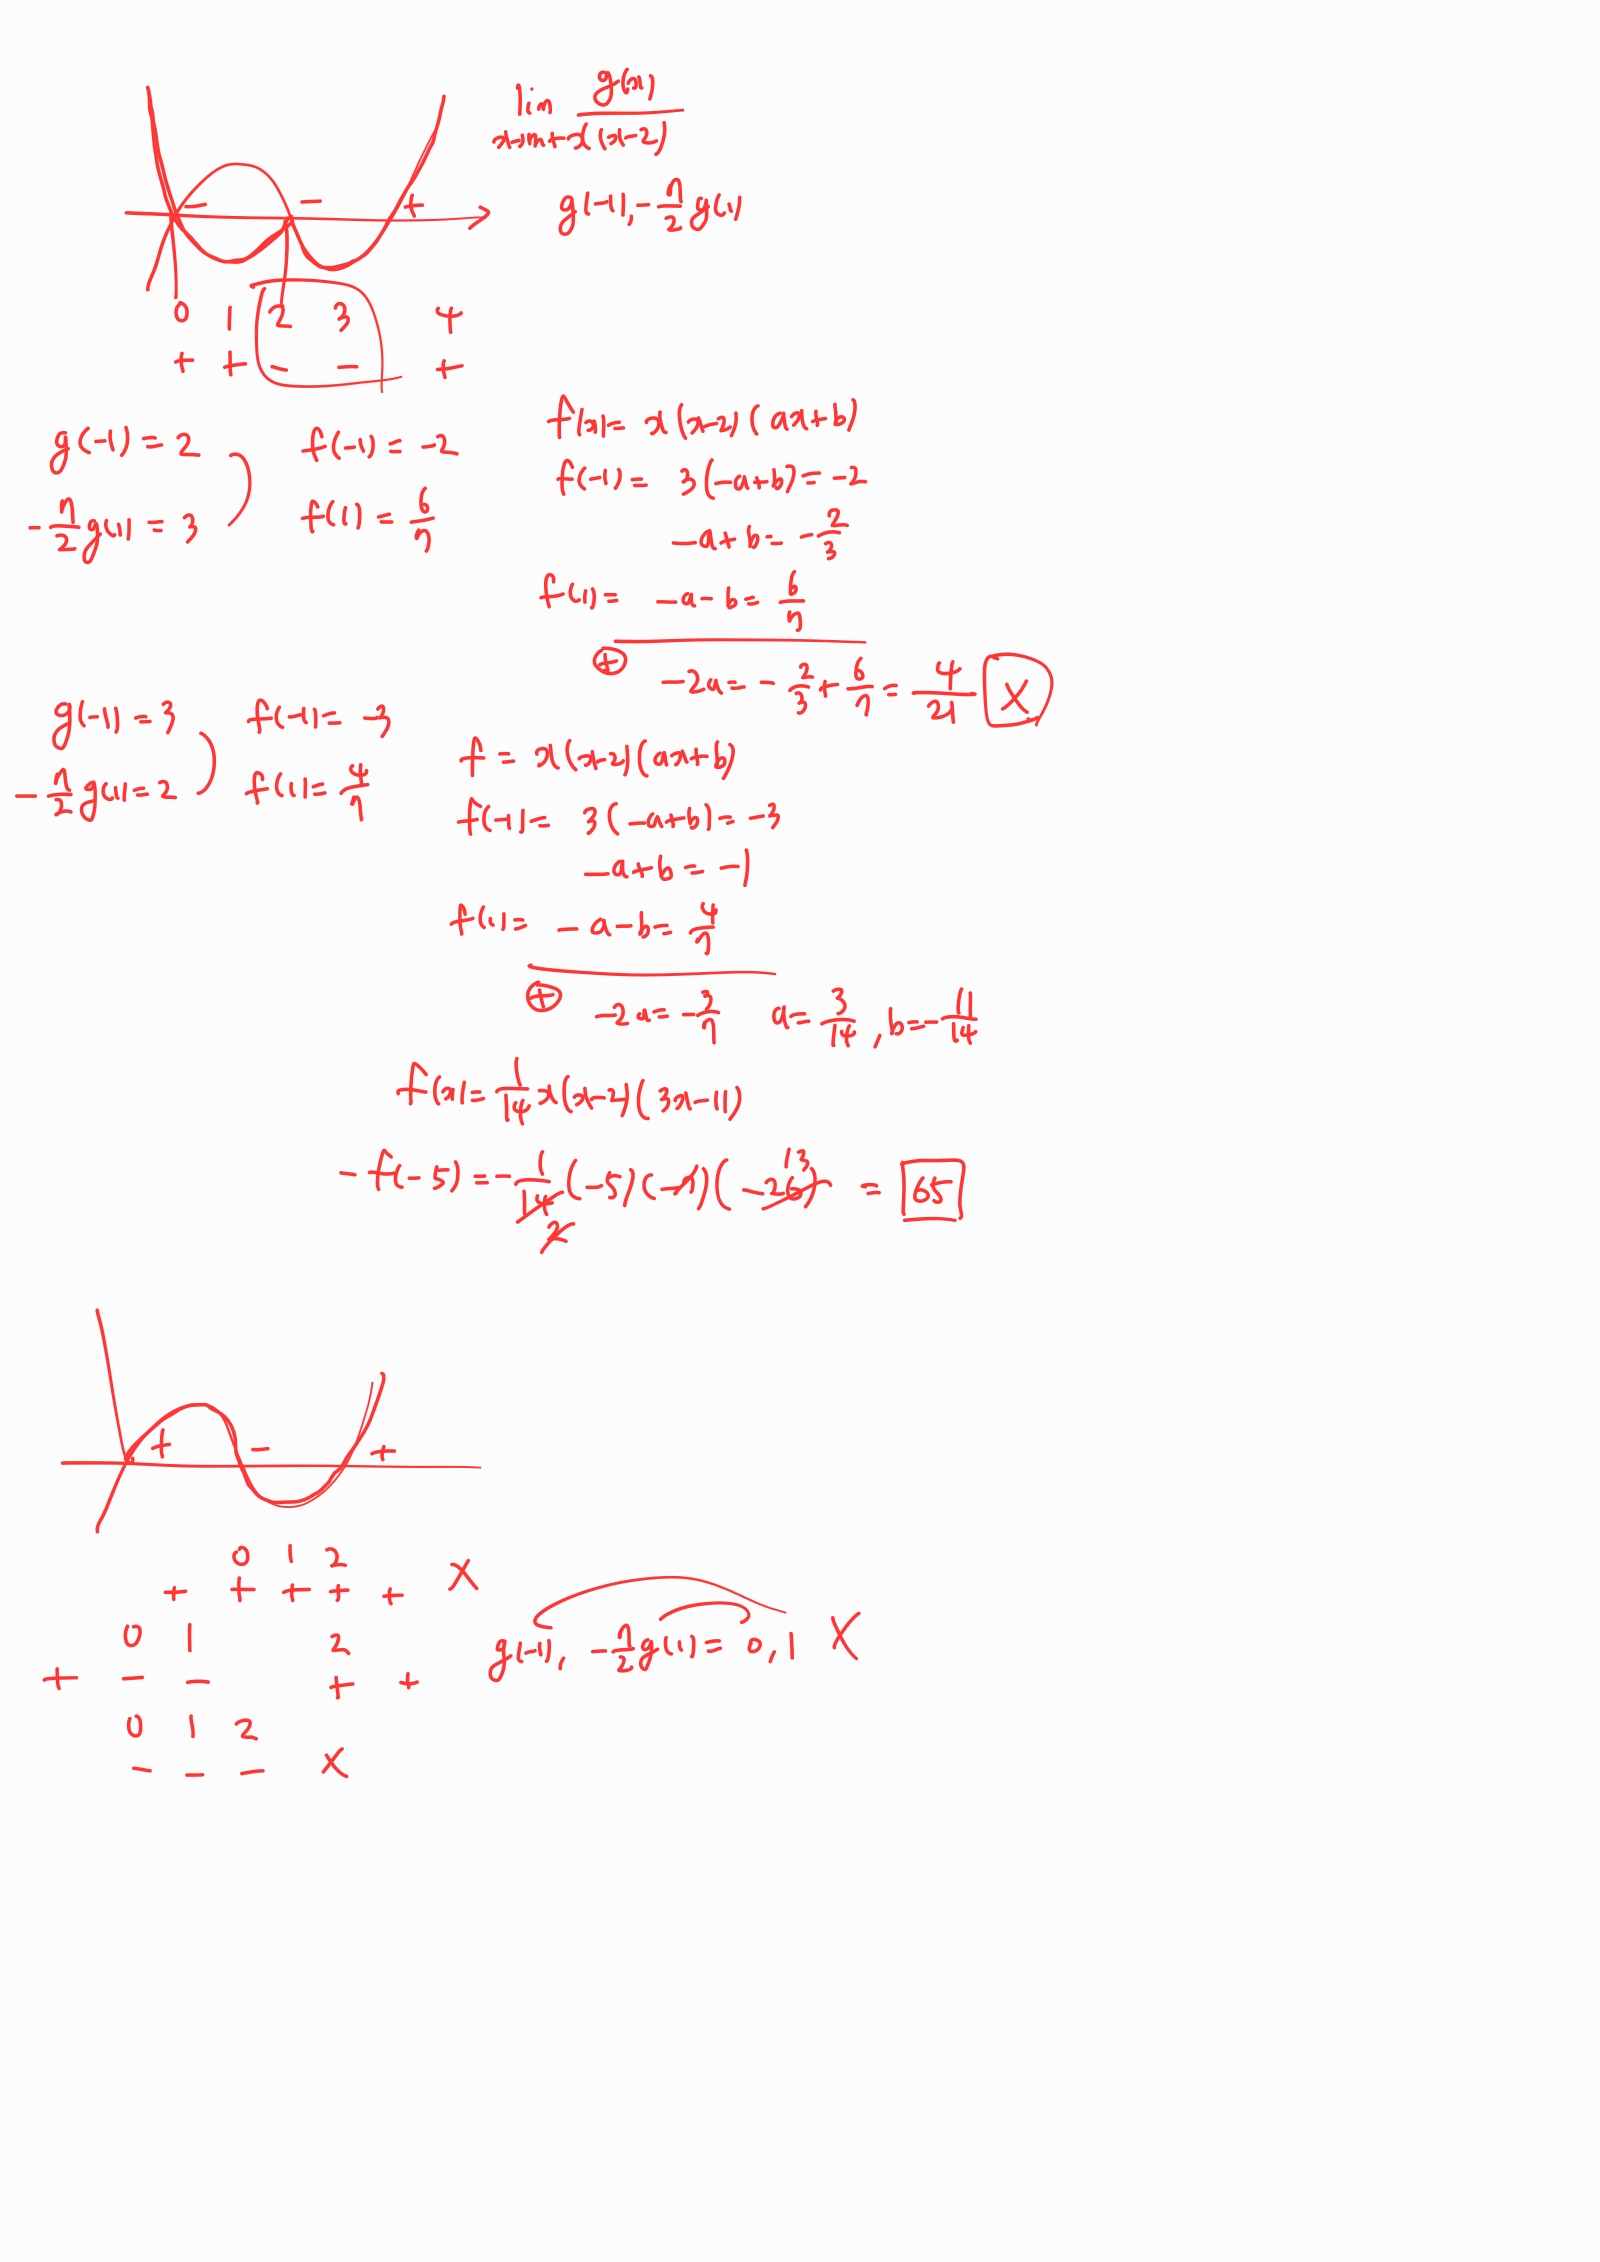 lim g(x)
x→m+ x(x-2)
g(-1), -7/2 g(1)
- - +
0 1 2 3 4
+ + - - +
f(x)= x(x-2)(ax+b)
g(-1) = 2 f(-1) = -2
f(-1) = 3(-a+b) = -2
-7/2 g(1) = 3 f(1) = 6/7
-a+b = -2/3
f(1) = -a-b = 6/7
⊕ -2a = -2/3 + 6/7 = 4/21 X
g(-1) = 3 f(-1) = -3
-7/2 g(1) = 2 f(1) = 4/7
f = x(x-2)(ax+b)
f(-1) = 3(-a+b) = -3
-a+b = -1
f(1) = -a-b = 4/7
⊕ -2a = -3/7 a = 3/14, b = -11/14
f(x) = 1/14 x(x-2)(3x-11)
-f(-5) = -1/14 (-5)(-7)(-26) = 65
13
2
+ - +
0 1 2
+ + + + + X
0 1 2
+ - - + +
g(-1), -7/2 g(1) = 0, 1 X
0 1 2
- - - X